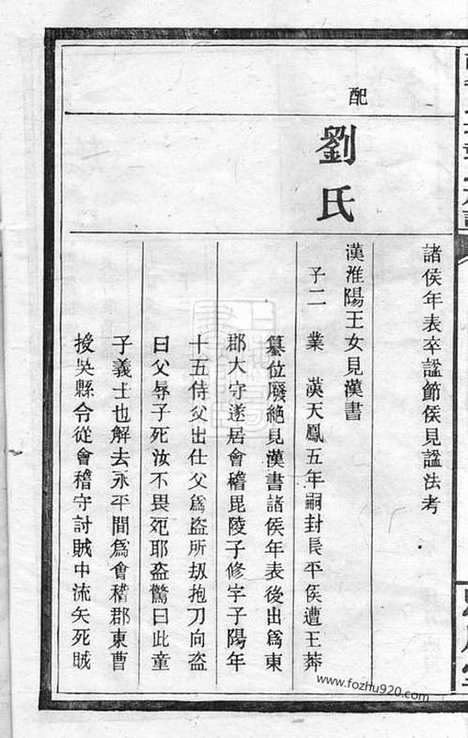 諸侯年表卒謚節侯見謚法考
配
劉氏
漢淮陽王女見漢書
子二 業 漢天鳳五年嗣封長平侯遭王莽
篡位廢絶見漢書諸侯年表後出爲東
郡大守遂居會稽毘陵子修字子陽年
十五侍父出仕父爲盜所刼抱刀向盜
曰父辱子死汝不畏死耶盜驚曰此童
子義士也解去永平間爲會稽郡東曹
授吳縣令從會稽守討賊中流矢死賊
www.fozhu920.com